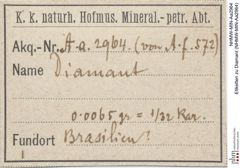 K. k. naturh. Hofmus. Mineral.- petr. Abt.
Akq.-Nr. A.a. 2964. (von A.f. 572)
Name Diamant
0.0065 gr = 1/32 Kar.
Fundort Brasilien?
NHMW-MIN-Aa2964
Etiketten zu Diamant (NHMW-MIN-Aa2964)